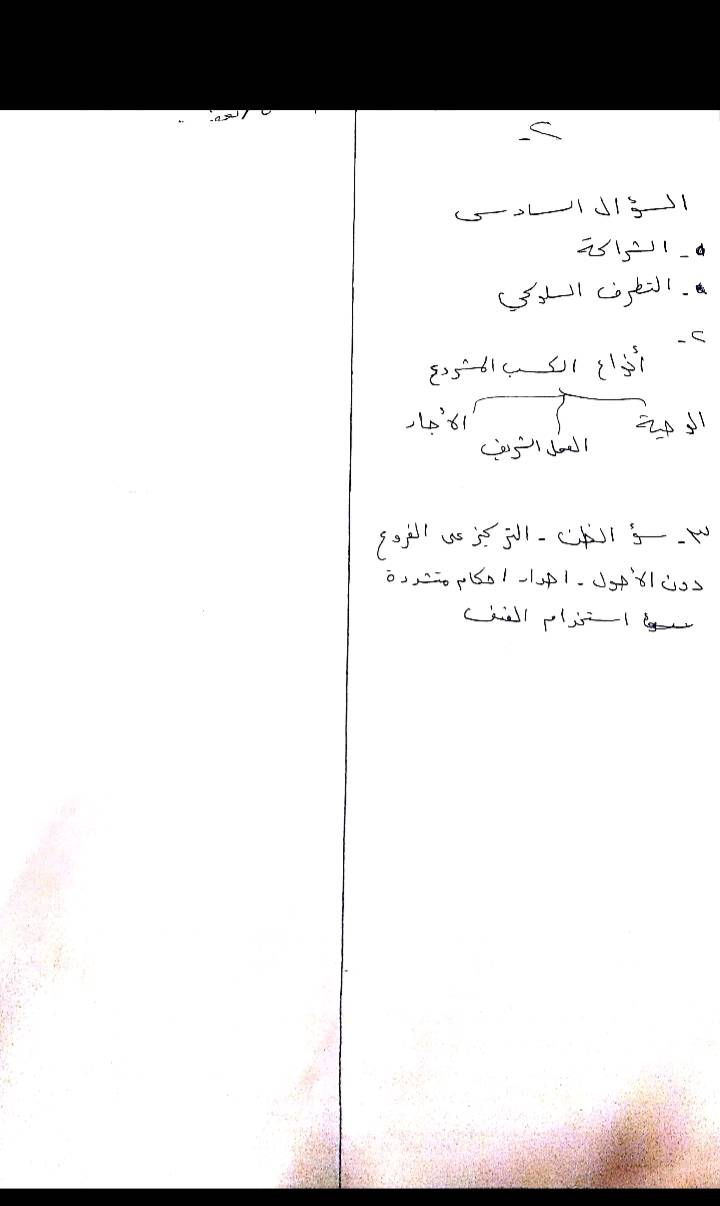 ٢-
السؤال السادس
- الشراكة
- التطرف السلوكي
٢-
أنواع الكسب المشروع
الوصية العمل الشريف الأجار
٣- سؤ الظن - التركيز على الفروع
دون الأصول - اصدار احكام متشددة
استخدام العنف